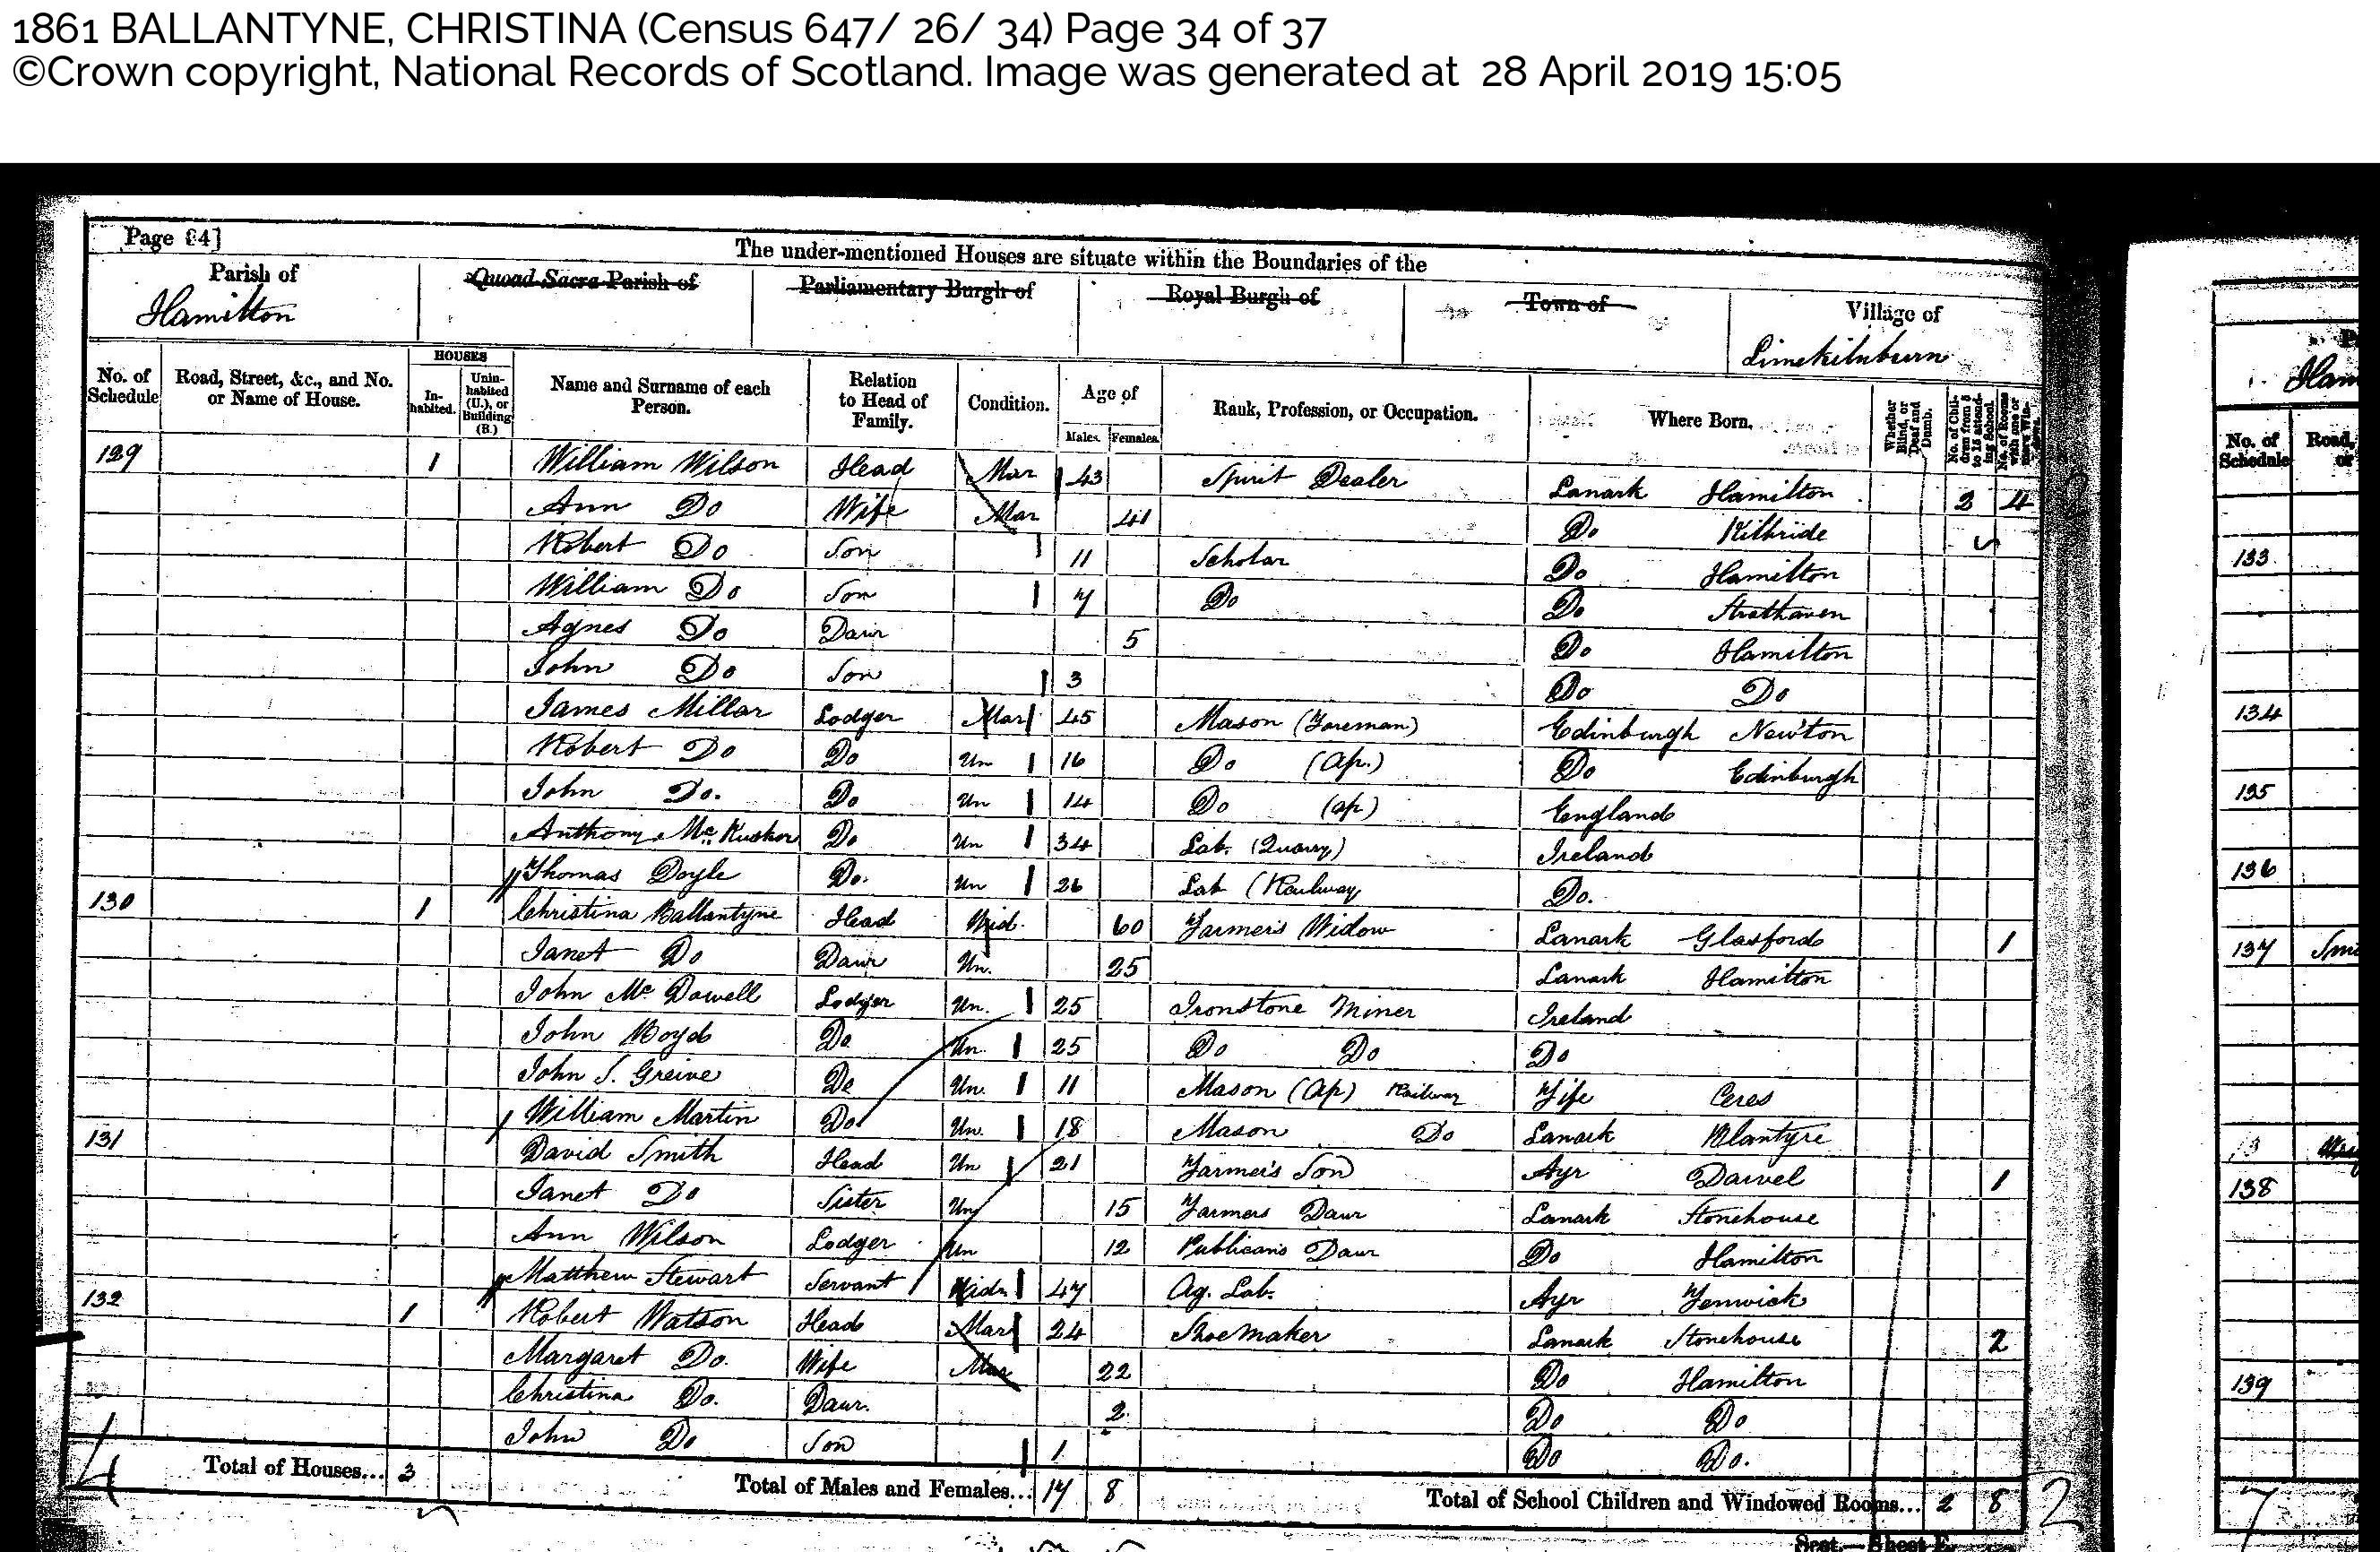 1861 BALLANTYNE, CHRISTINA (Census 647/ 26/ 34) Page 34 of 37
©Crown copyright, National Records of Scotland. Image was generated at 28 April 2019 15:05
Page 34]
The under-mentioned Houses are situate within the Boundaries of the
Parish of Hamilton Quoad Sacra Parish of Parliamentary Burgh of Royal Burgh of Town of Village of Limekilnburn
No. of Schedule Road, Street, &c., and No. or Name of House. HOUSES In-habited. Unin-habited (U.), or Building (B.) Name and Surname of each Person. Relation to Head of Family. Condition. Age of Males. Females. Rank, Profession, or Occupation. Where Born. Whether Blind, or Deaf and Dumb. No. of Chil-dren from 5 to 15 attend-ing School. No. of Rooms with one or more Win-dows.
129 1 William Wilson Head Mar 43 Spirit Dealer Lanark Hamilton 2 4
Ann Do Wife Mar 41 Do Kilbride
Robert Do Son 11 Scholar Do Hamilton
William Do Son 7 Do Do Strathaven
Agnes Do Daur 5 Do Hamilton
John Do Son 3 Do Do
James Millar Lodger Mar 45 Mason (Foreman) Edinburgh Newton
Robert Do Do Un 16 Do (Ap.) Do Edinburgh
John Do. Do Un 14 Do (ap) England
Anthony Mc Kusker Do Un 34 Lab. (Quarry) Ireland
Thomas Doyle Do. Un 26 Lab (Railway Do.
130 1 Christina Ballantyne Head Wid. 60 Farmer's Widow Lanark Glasford 1
Janet Do Daur Un. 25 Lanark Hamilton
John Mc Dowell Lodger Un. 25 Ironstone Miner Ireland
John Boyd Do Un. 25 Do Do Do
John S. Greive Do Un. 11 Mason (Ap) Railway Fife Ceres
William Martin Do Un. 18 Mason Do Lanark Blantyre
131 David Smith Head Un 21 Farmer's Son Ayr Darvel 1
Janet Do Sister Un 15 Farmers Daur Lanark Stonehouse
Ann Wilson Lodger Un 12 Publican's Daur Do Hamilton
Matthew Stewart Servant Widr 47 Ag. Lab. Ayr Fenwick
132 1 Robert Watson Head Mar 24 Shoemaker Lanark Stonehouse 2
Margaret Do. Wife Mar 22 Do Hamilton
Christina Do. Daur. 2 Do Do
John Do Son 1 Do Do.
Total of Houses... 3 Total of Males and Females... 17 8 Total of School Children and Windowed Rooms... 2 8
4 2
Scot.—Sheet E.
No. of Schedule
133
134
135
136
137
138
139
7